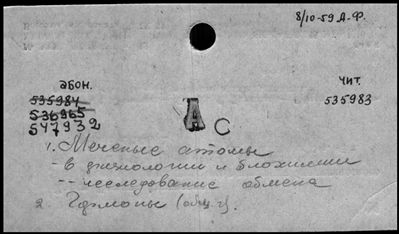 8/10-59 Д-Ф.
абон.
535984
536965
547932
чит.
535983
А С
1. Меченые атомы
- в физиологии и биохимии
-- исследование обмена
2. Гормоны (общ. г).